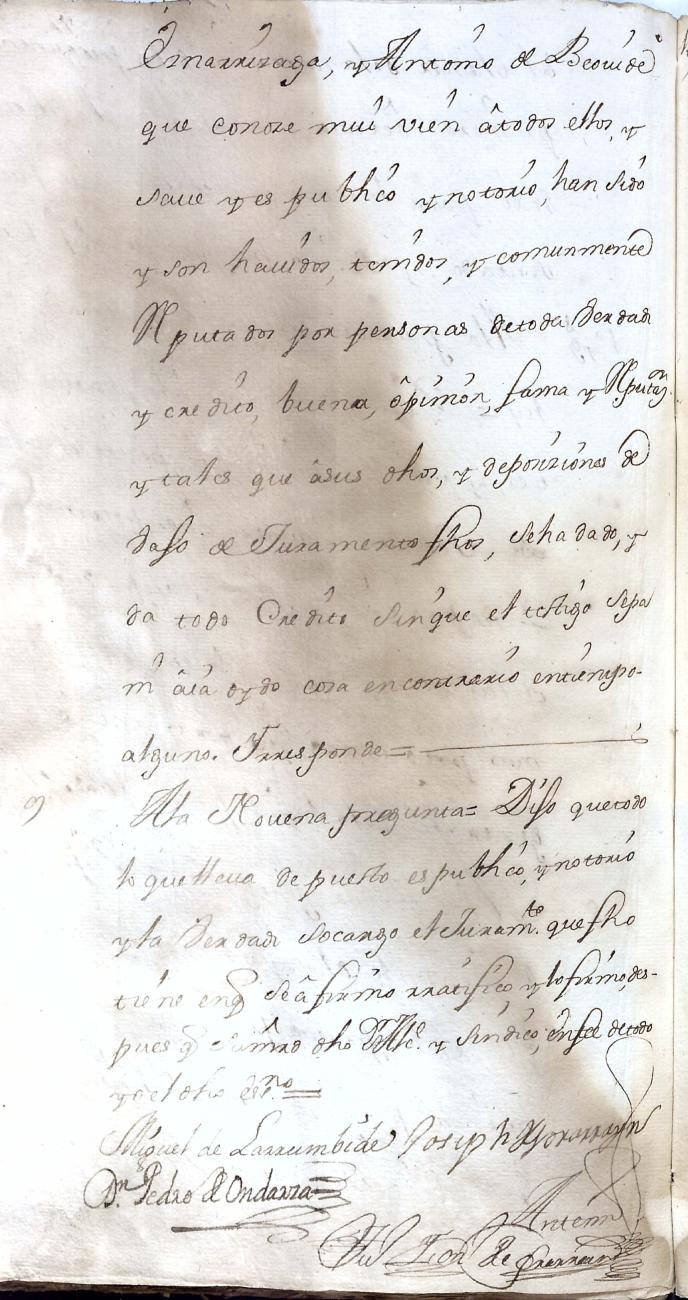 Eznarrizaga, y Antonio de Beovide
que conoze mui vien âtodos ellos, y
save y es publico y notorio, han sido
y son havidos, tenidos, y comunmente
Reputados por personas detoda Verdad
y credito, buena, ôpinion, fama y Reputaon
y tales que âsus dhos, y deposiziones de
vajo de Juramento fhos, seha dado, y
da todo Credito sinque el testigo sepa
ni âia oydo cosa encontrario entiempo
alguno. Yrresponde =
9 Ala Novena pregunta = Dijo quetodo
lo quelleva depuesto es publico, y notorio
yla Verdad socargo el Juramto. quefho
tiene enq̃ seâfirmo rratifico, y lofirmo, des-
pues q̃ su mrd dho Alce. y Sindico, enfee detodo
yo el dho esno. =
Miguel de Larrumbide Joseph
Dn. Pedro de Ondarza
Antemi
de